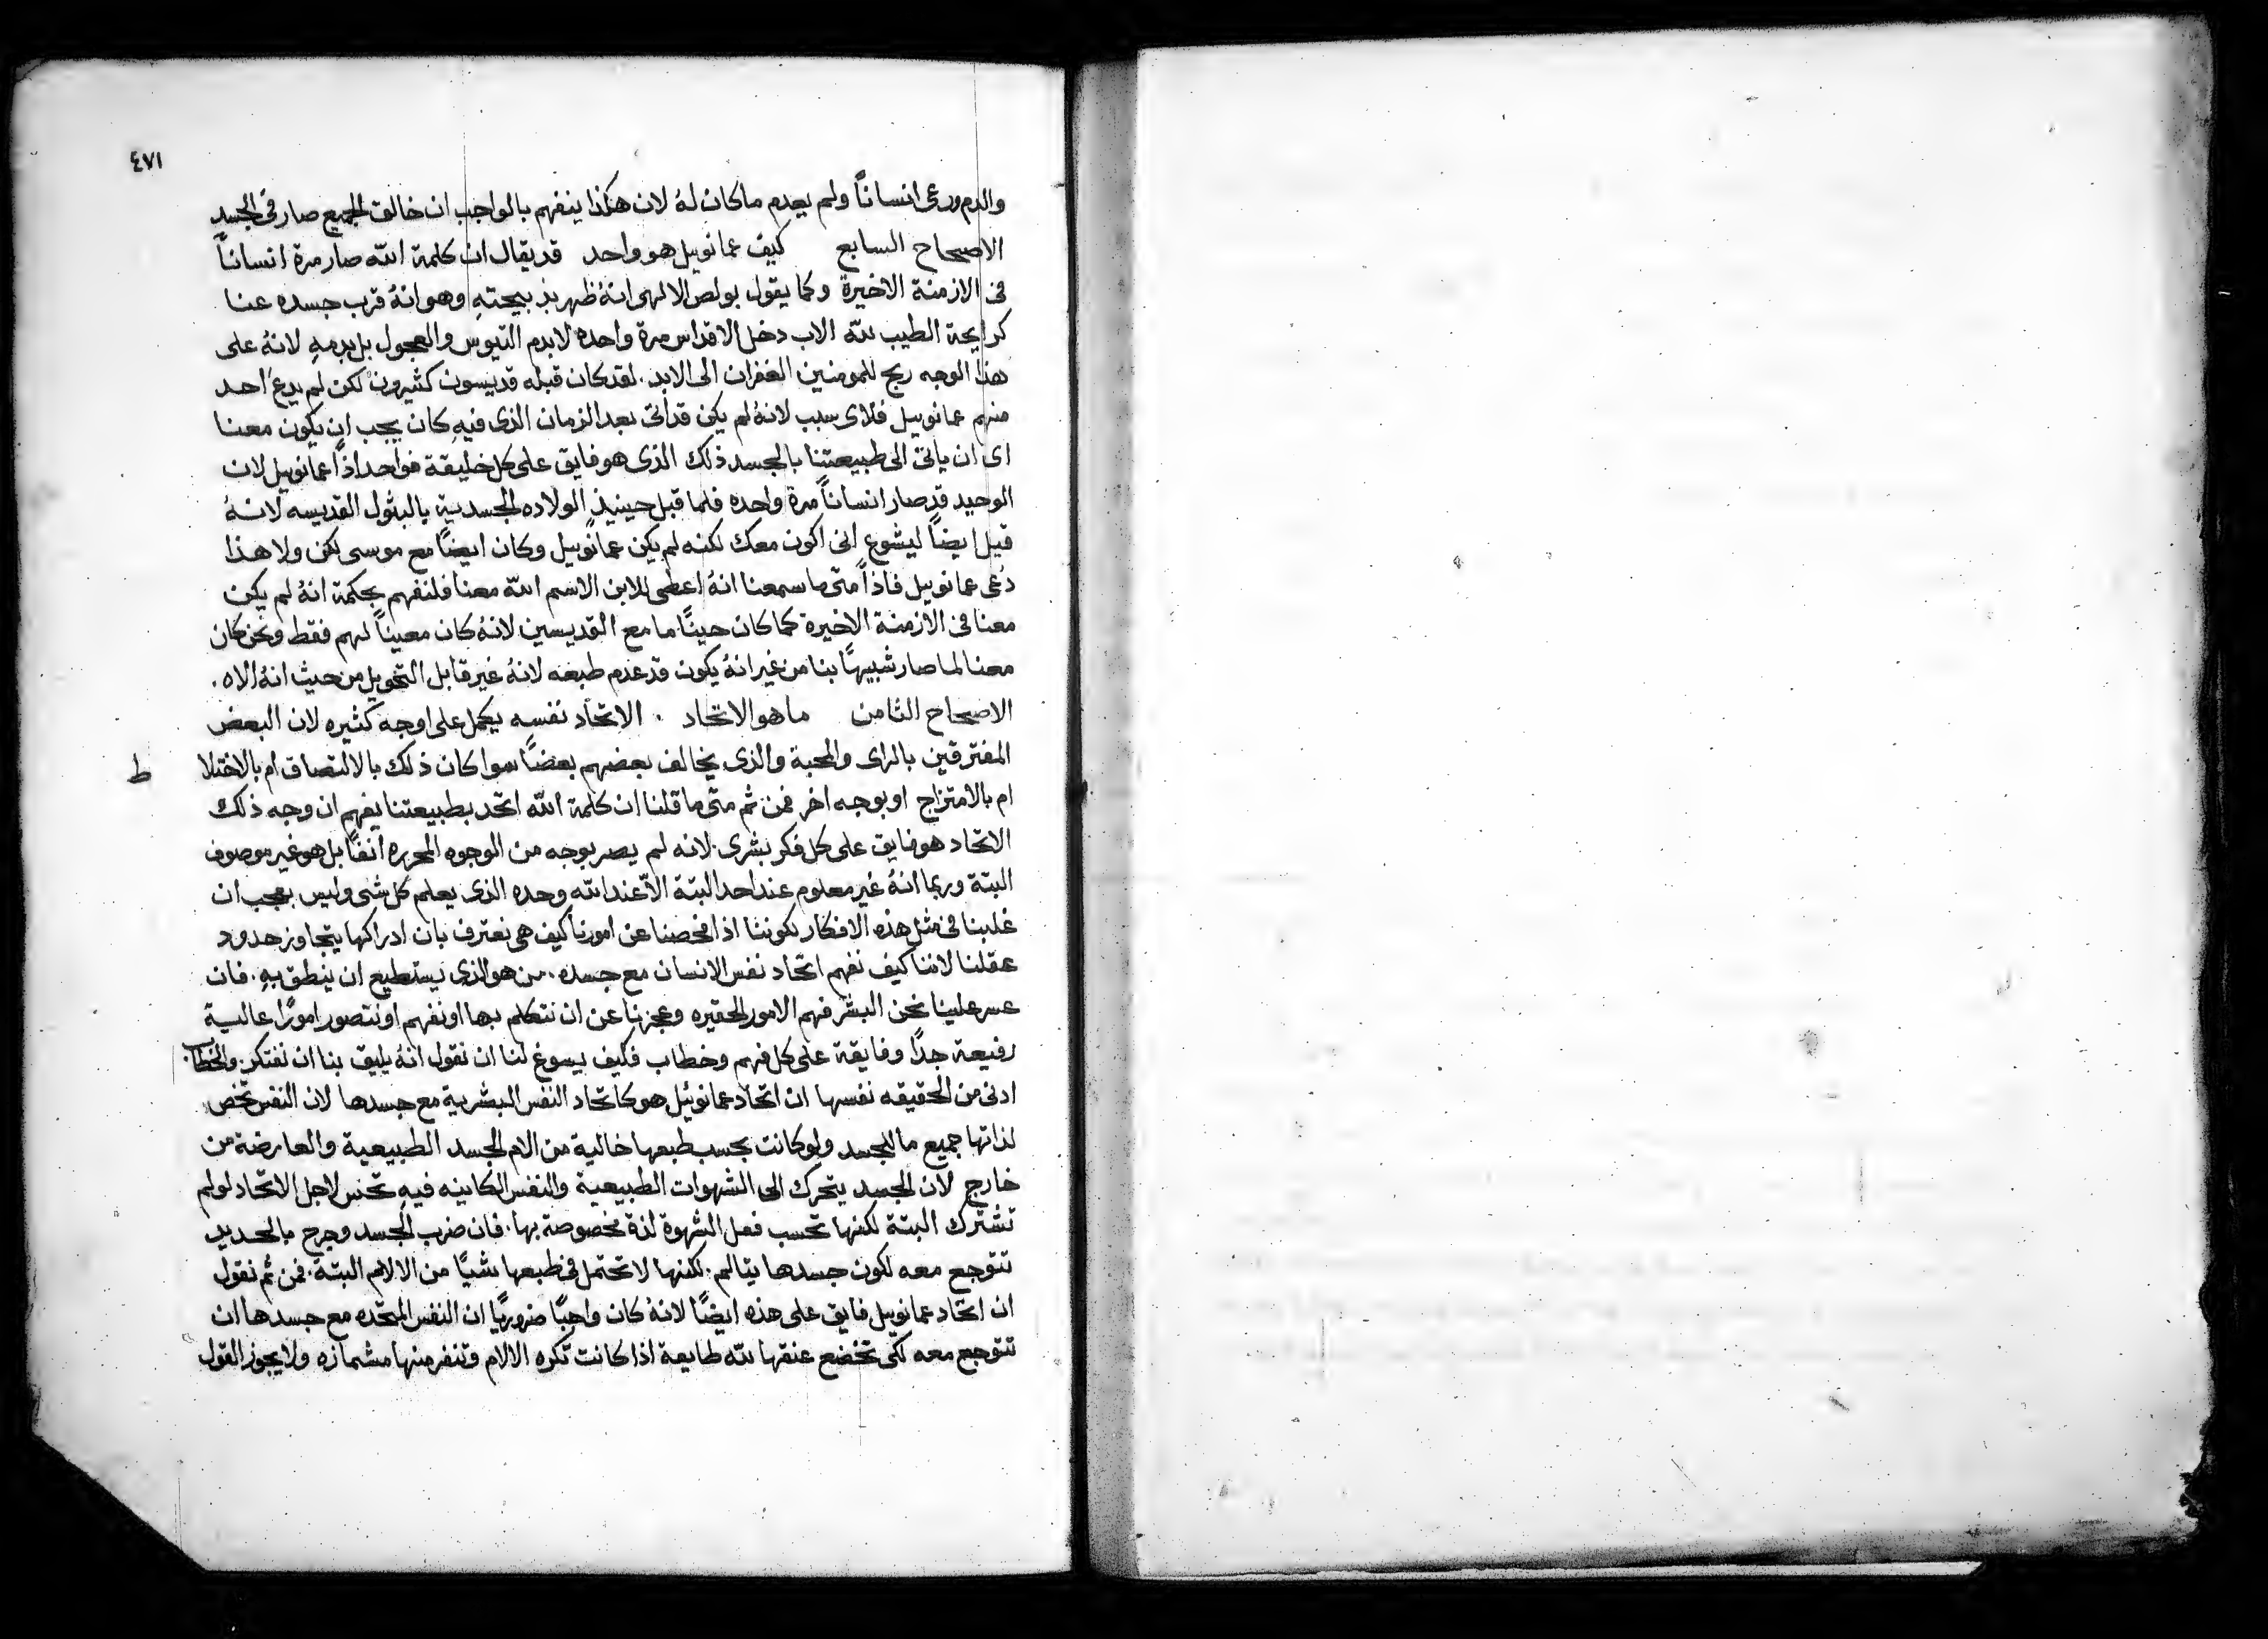 ٤٧١
والدم ودعى انساناً ولم يعدم ما كان لهُ لان هكذا ينفهم بالواجب ان خالق الجميع صار فى الجسد
الاصحاح السابع كيف عمانوييل هو واحد قد يقال ان كلمة الله صار مرة انساناً
فى الازمنة الاخيرة وكما يقول بولص الالهى انهُ ظهر بذبيحتهِ وهو انهُ قرب جسده عنا
كرايحة الطيب لله الاب دخل الاقداس مرة واحده لا بدم التيوس والعجول بل بدمهِ لانهُ على
هذا الوجه ربح للمومنين الغفران الى الابد. لقد كان قبله قديسون كثيرون لكن لم يدعَ احد
منهم عمانوييل فلاى سبب لانهُ لم يكن قد اتى بعد الزمان الذى فيهِ كان يجب ان يكون معنا
اى ان ياتى الى طبيعتنا بالجسد ذلك الذى هو فايق على كل خليقة فواحد اذاً عمانوييل لان
الوحيد قد صار انساناً مرة واحده فلما قبل حينيذٍ الولاده الجسدية بالبتول القديسه لانهُ
قيل ايضاً ليشوع انى اكون معك لكنه لم يكن عمانوييل وكان ايضاً مع موسى لكن ولا هذا
دُعى عمانوييل فاذاً متى ما سمعنا انهُ اعطى للابن الاسم الله معنا فلنفهم بحكمة انهُ لم يكن
معنا فى الازمنة الاخيرة كما كان حيناً ما مع القديسين لانهُ كان معيناً لهم فقط ونحن كان
معنا لما صار شبيهاً بنا من غير انهُ يكون قد عدم طبعه لانهُ غير قابل التحويل من حيث انهُ الاه.
الاصحاح الثامن ما هو الاتحاد . الاتحاد نفسه يكمل على اوجه كثيره لان البعض
المفترقين بالراى والمحبة والذى يخالف بعضهم بعضاً سوا كان ذلك بالالتصاق ام بالاختلا
ط
ام بالامتزاج او بوجه اخر فمن ثم متى ما قلنا ان كلمة الله اتحد بطبيعتنا يفهم ان وجه ذلك
الاتحاد هو فايق على كل فكر بشرى. لانه لم يصر بوجه من الوجوه المحرره انفاً بل هو غير موصوف
البتة وربما انهُ غير معلوم عند احد البتة الا عند الله وحده الذى يعلم كل شى وليس بعجب ان
غلبنا فى مثل هذه الافكار لكوننا اذا فحصنا عن امورنا كيف هى نعترف بان ادراكها يتجاوز حدود
عقلنا لاننا كيف نفهم اتحاد نفس الانسان مع جسده. من هو الذى يستطيع ان ينطق بهِ. فان
عسر علينا نحن البشر فهم الامور الحقيره وعجزنا عن ان نتكلم بها او نفهم او نتصور اموراً عالية
رفيعة جداً وفايقة على كل فهم وخطاب فكيف يسوغ لنا ان نقول انهُ يليق بنا ان نفتكر. والخطاب
ادنى من الحقيقه نفسها ان اتحاد عمانوئيل هو كاتحاد النفس البشرية مع جسدها لان النفس تخص
لذاتها جميع ما للجسد ولو كانت بحسب طبعها خالية من الام الجسد الطبيعية والعارضة من
خارج لان الجسد يتحرك الى الشهوات الطبيعية والنفس الكاينه فيهِ تحس لاجل الاتحاد لو لم
تشترك البتة لكنها تحسب فعل الشهوة لذة مخصوصة بها. فان ضرب الجسد وجرح بالحديد
تتوجع معه لكون جسدها يتالم. لكنها لا تحتمل فى طبعها شياً من الالام البتة. فمن ثم نقول
ان اتحاد عمانوييل فايق على هذه ايضاً لانهُ كان واجباً ضرورياً ان النفس المتحده مع جسدها ان
تتوجع معه لكى تخضع عنقها لله طايعة اذا كانت تكره الالام وتنفر منها مشمازه ولا يجوز القول